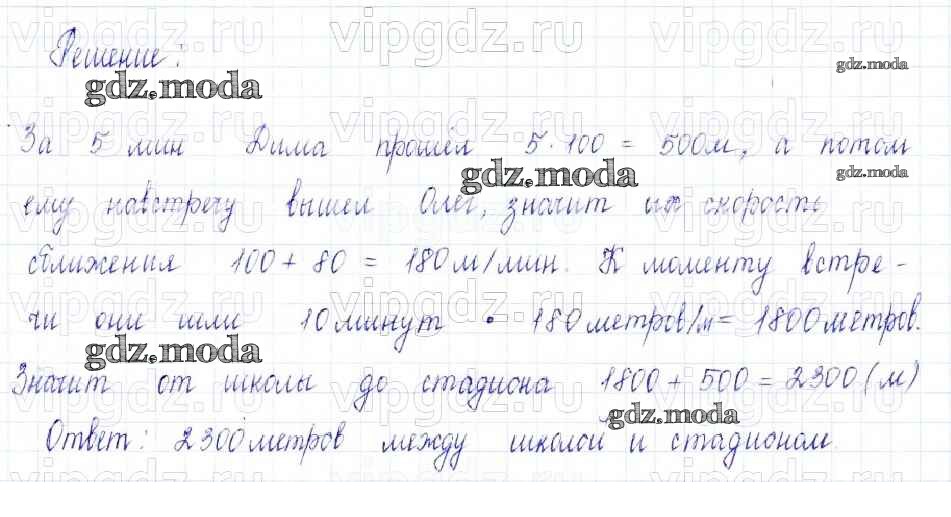 Решение:
За 5 мин Дима прошёл 5·100 = 500м, а потом
ему навстречу вышел Олег, значит их скорость
сближения 100 + 80 = 180 м/мин. К моменту встре-
чи они шли 10 минут · 180 метров/м = 1800 метров.
Значит от школы до стадиона 1800 + 500 = 2300 (м)
Ответ: 2300 метров между школой и стадионом.
vipgdz.ru
gdz.moda